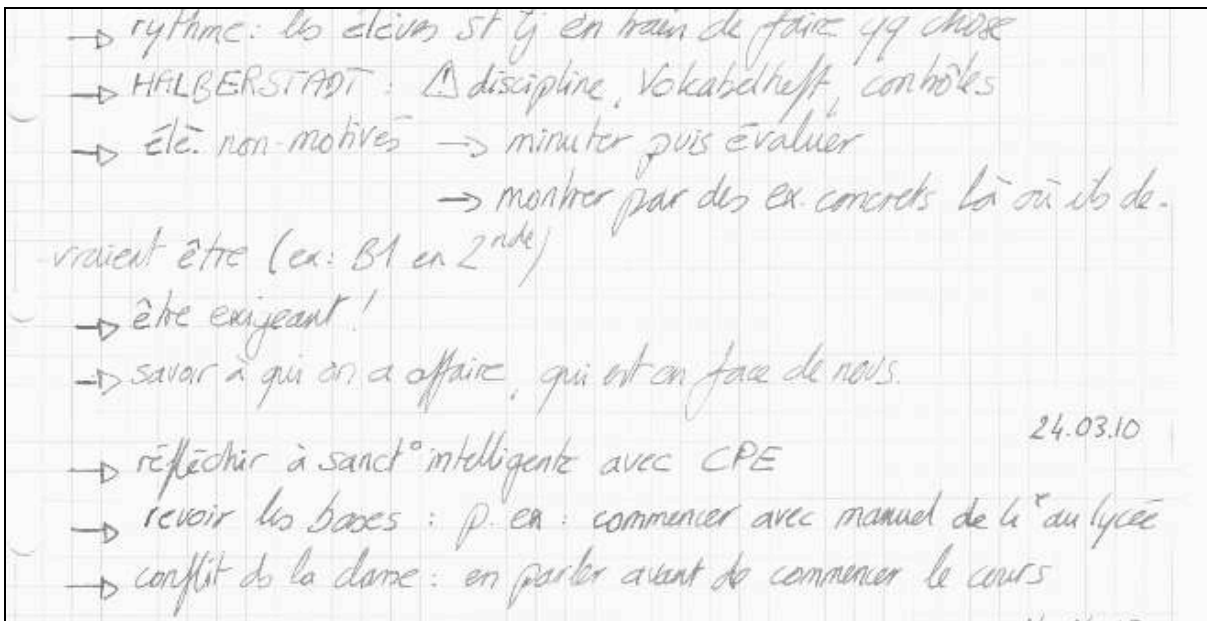 → rythme: les élèves st tj en train de faire qq chose
→ HALBERSTADT : ⚠ discipline, Volkabelheft, contrôles
→ élè. non-motivés → minuter puis évaluer
→ montrer par des ex. concrets là où ils de-
vraient être (ex: B1 en 2nde)
→ être exigeant!
→ savoir à qui on a affaire, qui est en face de nous.
24.03.10
→ réfléchir à sanct° intelligente avec CPE
→ revoir les bases : p. ex : commencer avec manuel de 4e au lycée
→ conflit ds la classe : en parler avant de commencer le cours